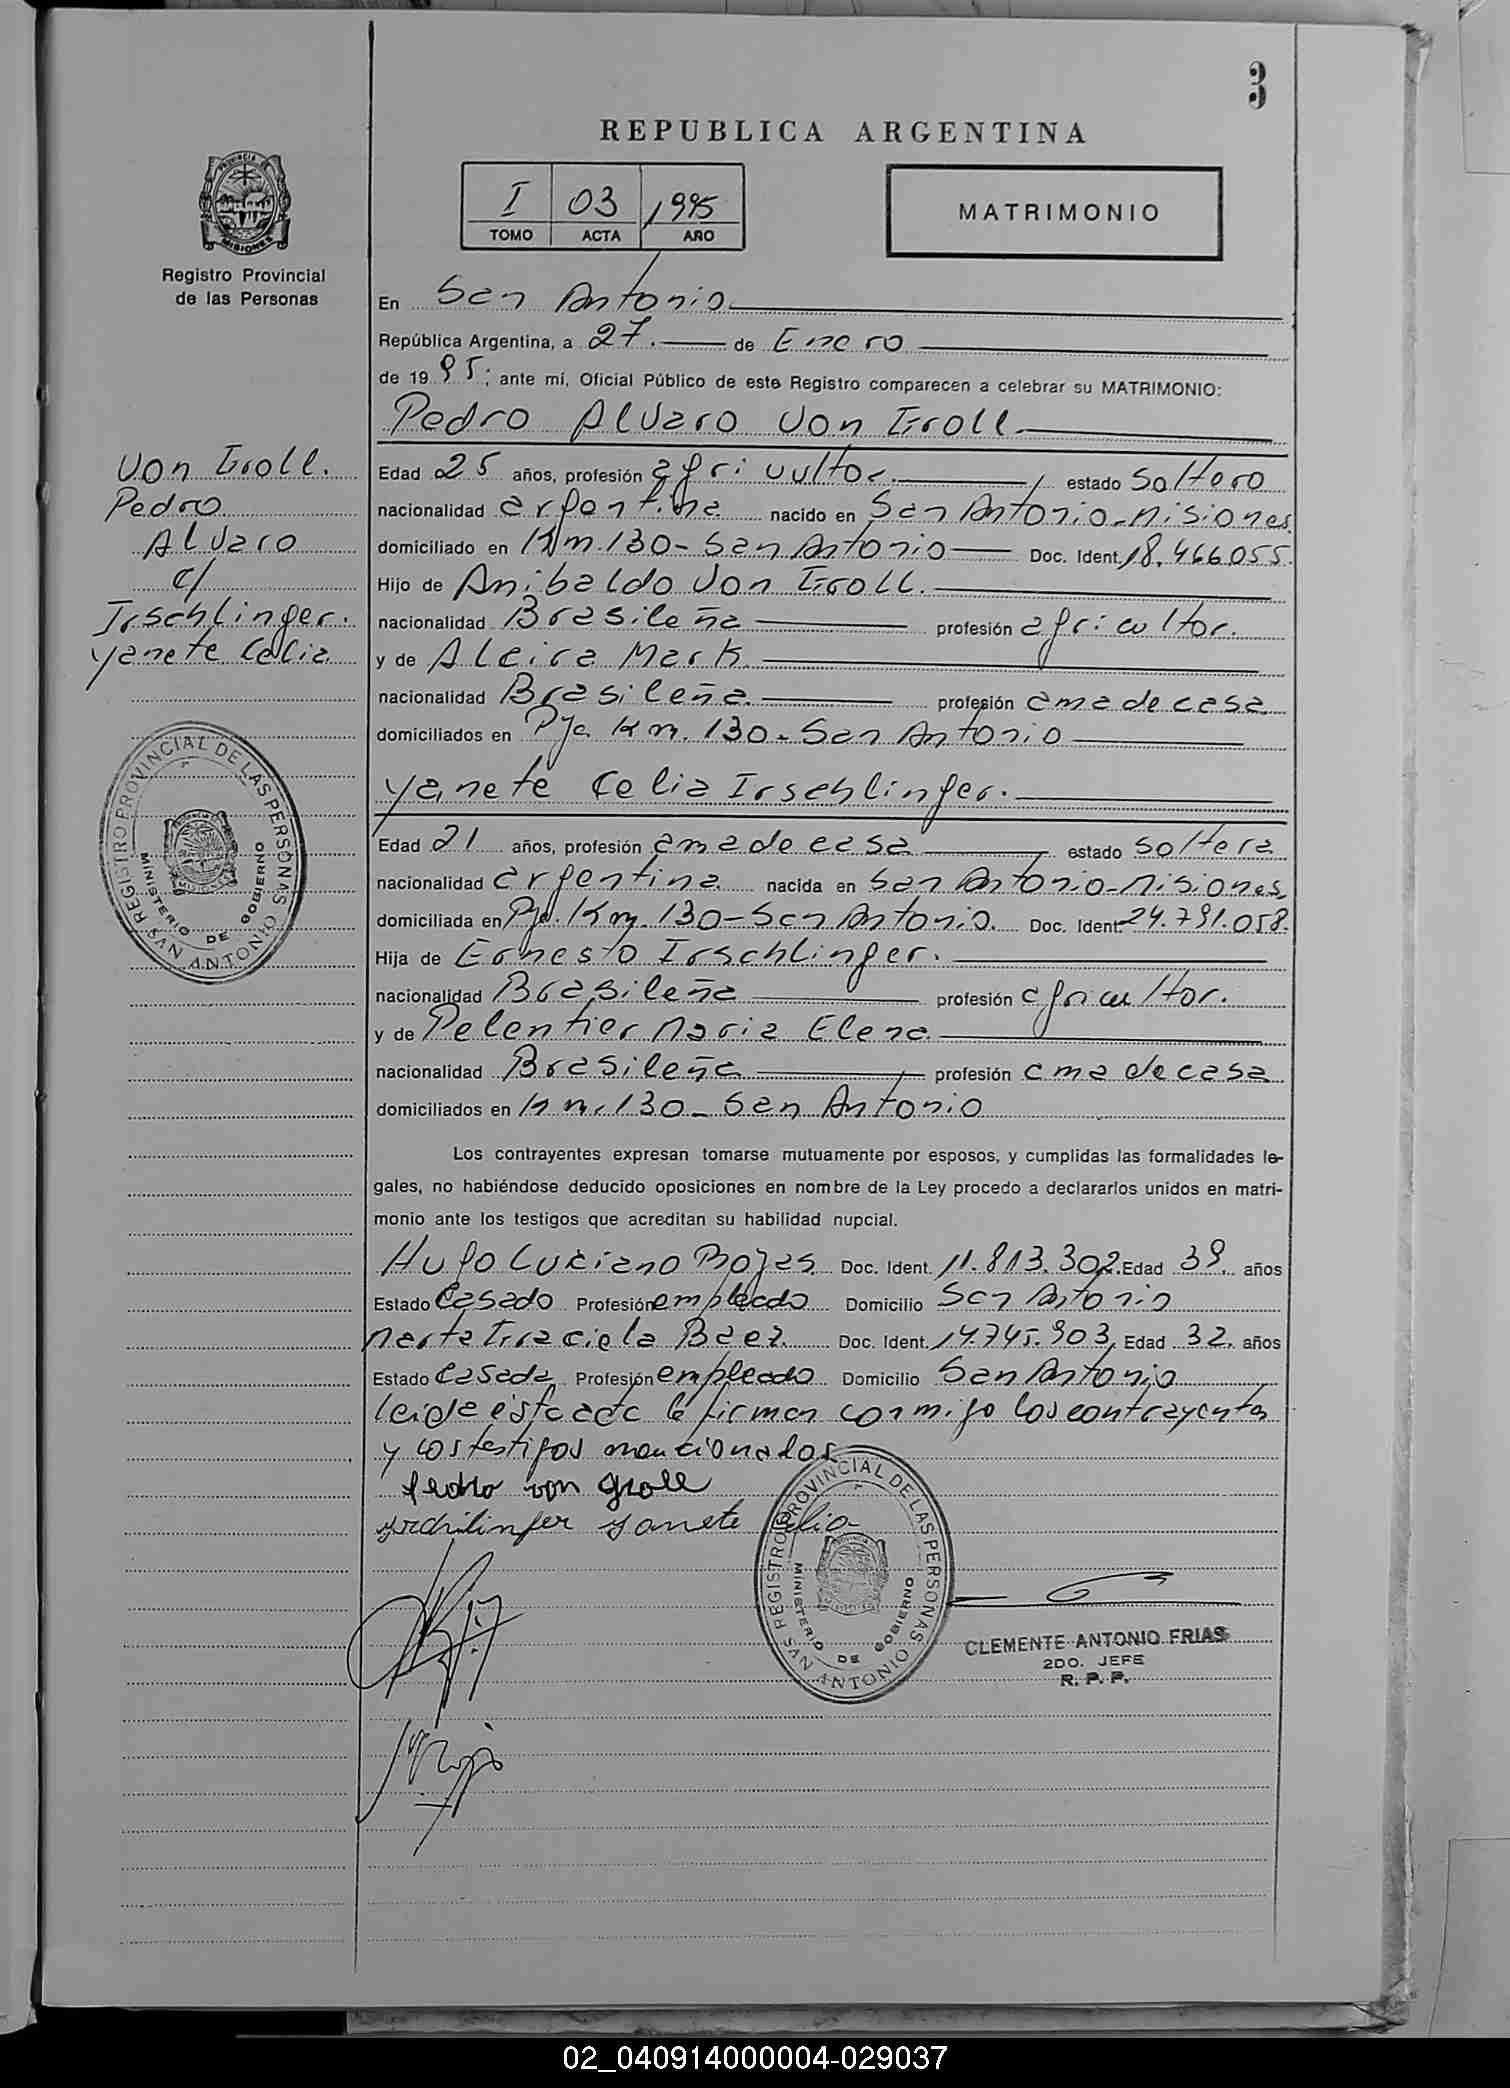 3
REPUBLICA ARGENTINA
I 03 1995
TOMO ACTA AÑO
MATRIMONIO
PROVINCIA DE
MISIONES
Registro Provincial
de las Personas
En San Antonio
República Argentina, a 27. de Enero
de 1995; ante mí, Oficial Público de este Registro comparecen a celebrar su MATRIMONIO:
Pedro Alvaro Von Groll.
Von Groll.
Pedro
Alvaro
c/
Irschlinger.
Yanete Celia
Edad 25 años, profesión agricultor. estado Soltero
nacionalidad argentina nacido en San Antonio-Misiones
domiciliado en Km.130-San Antonio Doc. Ident. 18.466055.
Hijo de Anibaldo Von Groll.
nacionalidad Brasileña profesión agricultor.
y de Alcira Mark
nacionalidad Brasileña. profesión ama de casa
domiciliados en Pje Km. 130-San Antonio
Yanete Celia Irschlinger.
Edad 21 años, profesión ama de casa estado Soltera
nacionalidad argentina nacida en San Antonio-Misiones
domiciliada en Pje. Km. 130-San Antonio. Doc. Ident. 24.791.058.
Hija de Ernesto Irschlinger.
nacionalidad Brasileña profesión agricultor.
y de Pelentier Maria Elena
nacionalidad Brasileña profesión ama de casa
domiciliados en Km.130-San Antonio
Los contrayentes expresan tomarse mutuamente por esposos, y cumplidas las formalidades le-
gales, no habiéndose deducido oposiciones en nombre de la Ley procedo a declararlos unidos en matri-
monio ante los testigos que acreditan su habilidad nupcial.
Hugo Luciano Rojas. Doc. Ident. 11.813.302. Edad 39. años
Estado Casado Profesión empleado Domicilio San Antonio
Marta Graciela Baez. Doc. Ident. 14.745.903, Edad 32. años
Estado Casada Profesión empleado Domicilio San Antonio
leida esta acta la firman conmigo los contrayentes
y los testigos mencionados
Pedro von Groll
Irschlinger Yanete Celia
REGISTRO PROVINCIAL DE LAS PERSONAS
MINISTERIO DE GOBIERNO
SAN ANTONIO
REGISTRO PROVINCIAL DE LAS PERSONAS
MINISTERIO DE GOBIERNO
SAN ANTONIO
CLEMENTE ANTONIO FRIAS
2DO. JEFE
R. P. P.
02_040914000004-029037